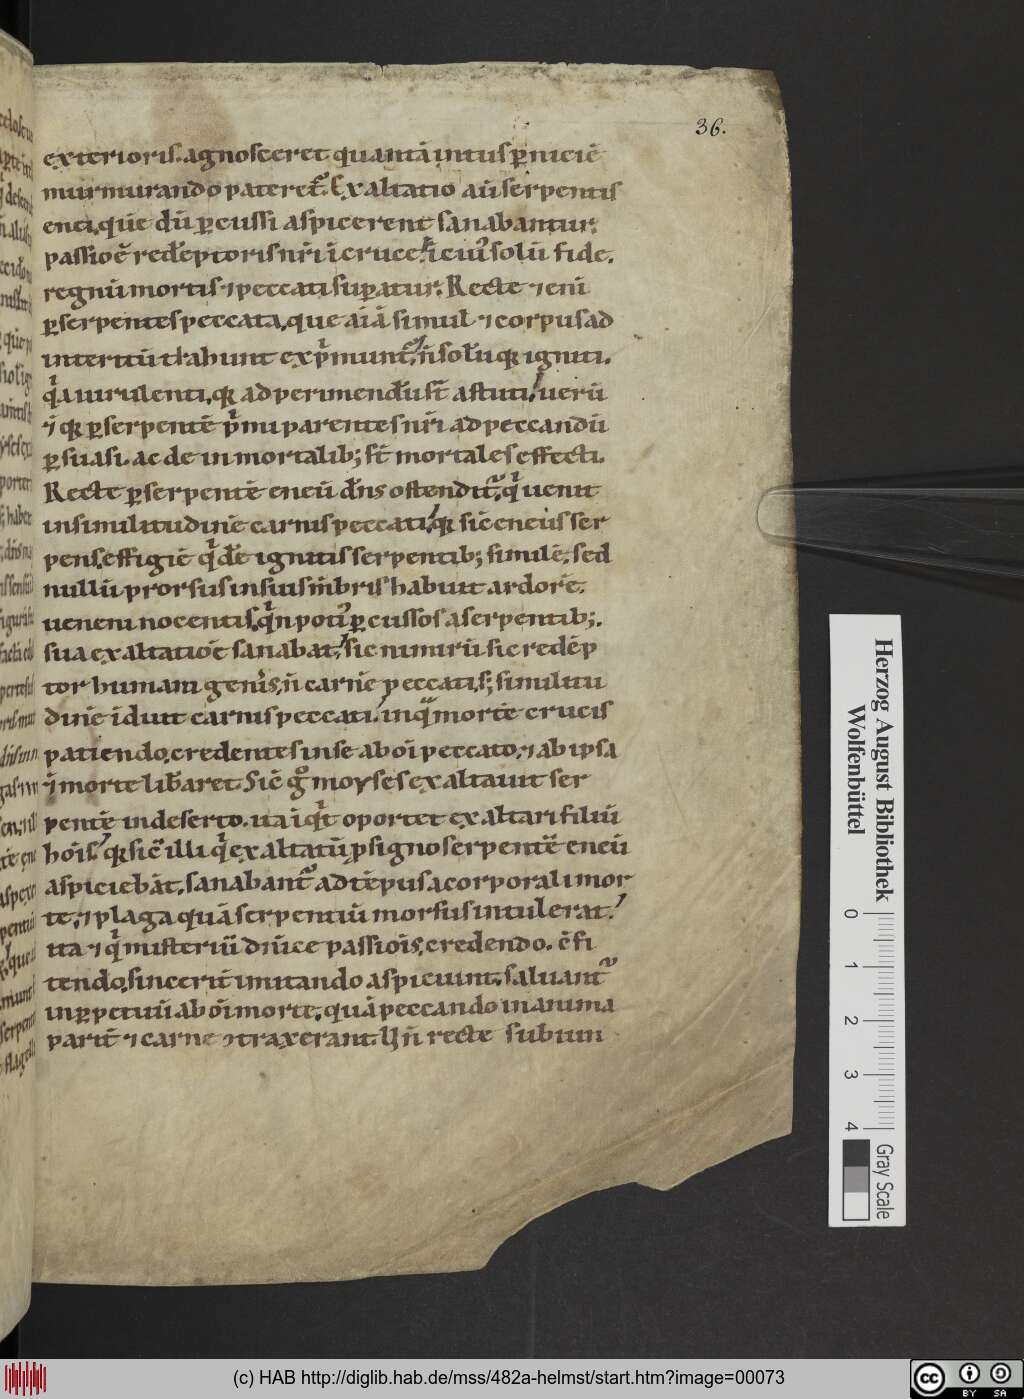 36.
exterioris. agnosceret quantā intus p̱niciē
murmurando pateret᷒. Exaltatio aū serpentis
enei, quē dū p̱cussi aspicerent sanabantur;
passio ē redēptoris nr̄i ī cruce. ī cui᷒ solū fide.
regnū mortis ⁊ peccati sup̱atur. Recte ⁊ enī
p̱ serpentes peccata, que aīā simul ⁊ corpus ad
interitū trahunt exp̄munt᷒, n̄ solū qꝫ igniti.
qͥa uirulenti, qꝫ ad perimendū st̄ astuti, uerū
⁊ qꝫ p̱ serpentē pͥmi parentes nr̄i ad peccandū
p̱suasi. ac de inmortalib; st̄ mortales effecti.
Recte p̱ serpentē eneū dn̄s ostendit᷒, qͥ uenit
in similitudinē carnis peccati, qꝫ sic̄ eneus ser
pens, effigiē qͥdē ignitis serpentib; similē, sed
nullū prorsus in suis mb̄ris habuit ardorē.
ueneni nocentis, qͥn poti᷒ p̱cussos a serpentib;.
sua exaltatiōe sanabat, sic nimirū sic redēp
tor humani gen̄is, n̄ carnē peccati, s; similitu
dinē īduit carnis peccati, in qͣ mortē crucis
patiendo, credentes in se ab oī peccato, ⁊ ab ipsa
⁊ morte lib̄aret. Sic̄ gͦ moyses exaltauit ser
pentē in deserto. ita īqͥt oportet exaltari filiū
hoīs, qꝫ sic̄ illi qͥ exaltatū p signo serpentē eneū
aspiciebāt, sanabant᷒ ad tēpus a corporali mor
te, ⁊ plaga quā serpentiū morsus intulerat,
ita ⁊ qͥ misteriū dn̄ice passiōis, credendo. cōfi
tendo, sincerit̄ imitando aspiciunt, saluant᷒
in p̱petuū ab oī morte, quā peccando in anima
parit̄ ⁊ carne ↄtraxerant. Hn̄ recte subiun
Herzog August Bibliothek
Wolfenbüttel
0 1 2 3 4
Gray Scale
(c) HAB http://diglib.hab.de/mss/482a-helmst/start.htm?image=00073
cc BY SA